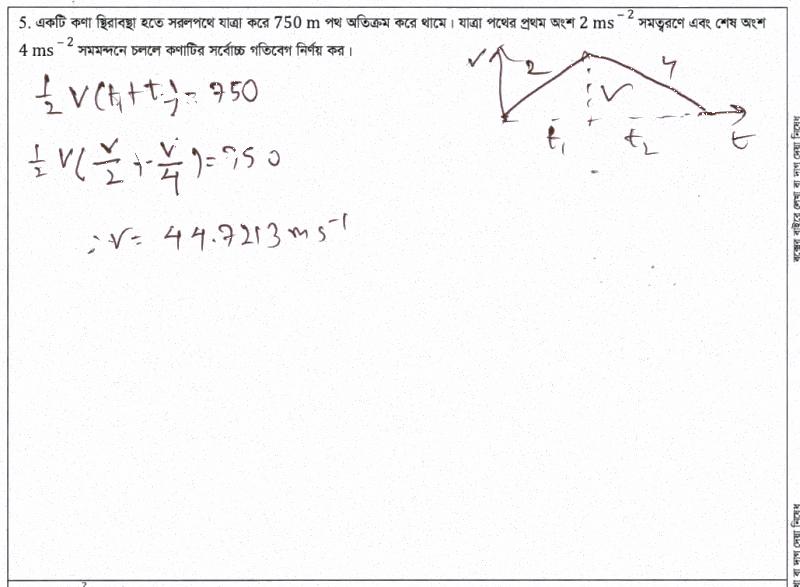 5. একটি কণা স্থিরাবস্থা হতে সরলপথে যাত্রা করে 750 m পথ অতিক্রম করে থামে। যাত্রা পথের প্রথম অংশ 2 ms⁻² সমত্বরণে এবং শেষ অংশ
4 ms⁻² সমমন্দনে চললে কণাটির সর্বোচ্চ গতিবেগ নির্ণয় কর।
v 2 4
v
t₁ t₂ t
½ v(t₁+t₂) = 750
½ v(v/2 + v/4) = 750
∴ v = 44.7213 ms⁻¹
বক্সের বাইরে লেখা বা দাগ দেয়া নিষেধ
বা দাগ দেয়া নিষেধ